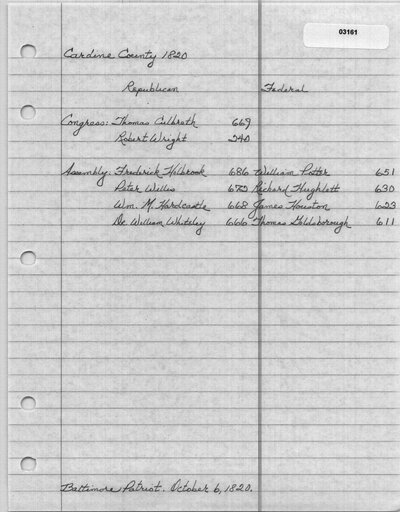 03161
Caroline County 1820
Republican Federal
Congress: Thomas Culbreth 669
Robert Wright 240
Assembly: Frederick Holbrook 686 William Potter 651
Peter Willis 675 Richard Hughlett 630
Wm. M. Hardcastle 668 James Houston 623
Dr. William Whiteley 666 Thomas Goldsborough 611
Baltimore Patriot. October 6, 1820.